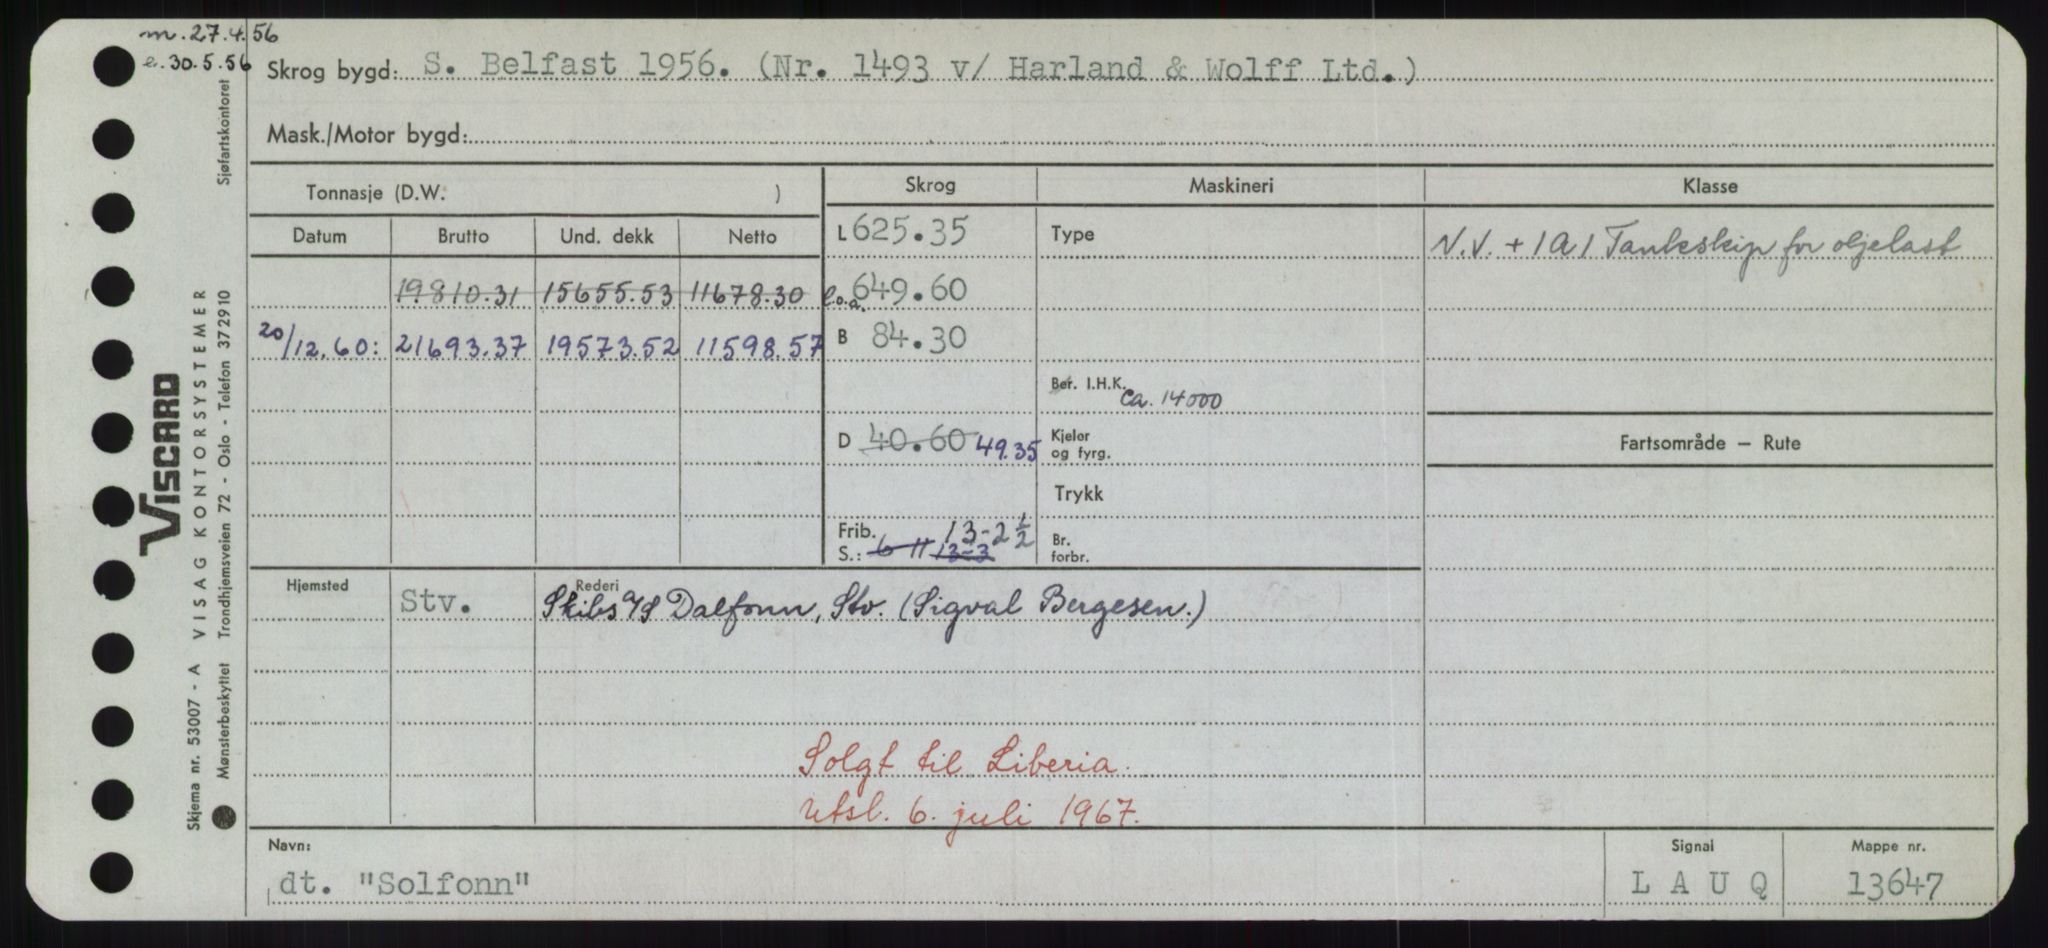 m. 27.4.56
e. 30.5.56
Skrog bygd: S. Belfast 1956. (Nr. 1493 v/ Harland & Wolff Ltd.)
Mask./Motor bygd:
Tonnasje (D.W. )
Skrog
Maskineri
Klasse
Datum Brutto Und. dekk Netto
L 625.35
Type
N.V. + 1A1 Tankskip for oljelast
19810.31 15655.53 11678.30
l.o.a. 649.60
20/12.60: 21693.37 19573.52 11598.57
B 84.30
Ber. I.H.K. ca. 14000
D 40.60 49.35
Kjeler
og fyrg.
Fartsområde — Rute
Trykk
Frib. 13-2 1/2
S.: 6-11 13-3
Br.
forbr.
Hjemsted
Stv.
Rederi
Skibs a/s Dalfonn, Stv. (Sigval Bergesen.)
Solgt til Liberia.
Utsl. 6. juli 1967.
Navn:
dt. "Solfonn"
Signal
L A U Q
Mappe nr.
13647
VISCARD
Skjema nr. 53007 - A VISAG KONTORSYSTEMER
Mønsterbeskyttet Trondhjemsveien 72 - Oslo - Telefon 372910 Sjøfartskontoret